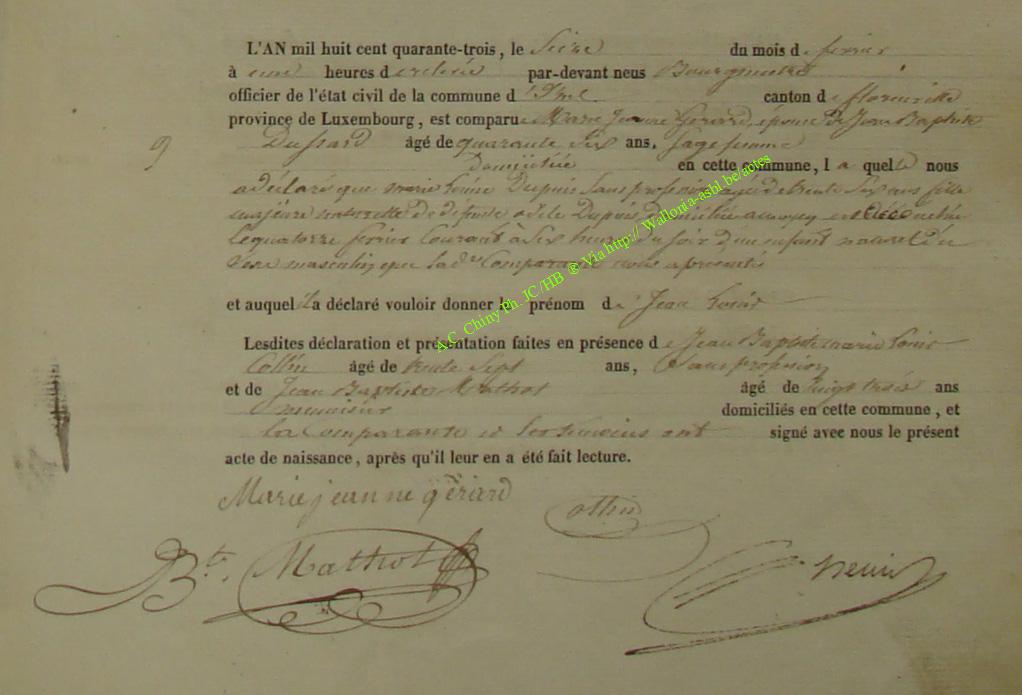 L'AN mil huit cent quarante-trois, le Seize du mois de fevrier
à onze heures d par-devant nous Bourgmestre
officier de l'état civil de la commune d' canton de florenville
province de Luxembourg, est comparue Marie Jeanne Gérard, épouse de Jean Baptiste
9 Dussard âgé de quarante Six ans, Sage femme
Domiciliée en cette commune, laquelle nous
a déclaré que marie Dupuis Sans profession agée de trente Six ans fille
majeure naturelle de défunte adele Dupuis Domiciliée est accouchée
le quatorze fevrier Courant à Six heures du Soir d'un enfant naturel du
Sexe masculin que la dte Comparante nous a presenté
et auquel a déclaré vouloir donner le prénom de Jean Louis
Lesdites déclaration et présentation faites en présence de Jean Baptiste marie Louis
Collin âgé de trente Sept ans, Sans profession
et de Jean Baptiste Mathot âgé de vingt trois ans
menuisier domiciliés en cette commune, et
la Comparante et les temoins ont signé avec nous le présent
acte de naissance, après qu'il leur en a été fait lecture.
Marie jeanne gérard
Collin
Bte. Mathot
A.C. Chiny Ph. JC/HB ® Via http:// Wallonia-asbl.be/actes